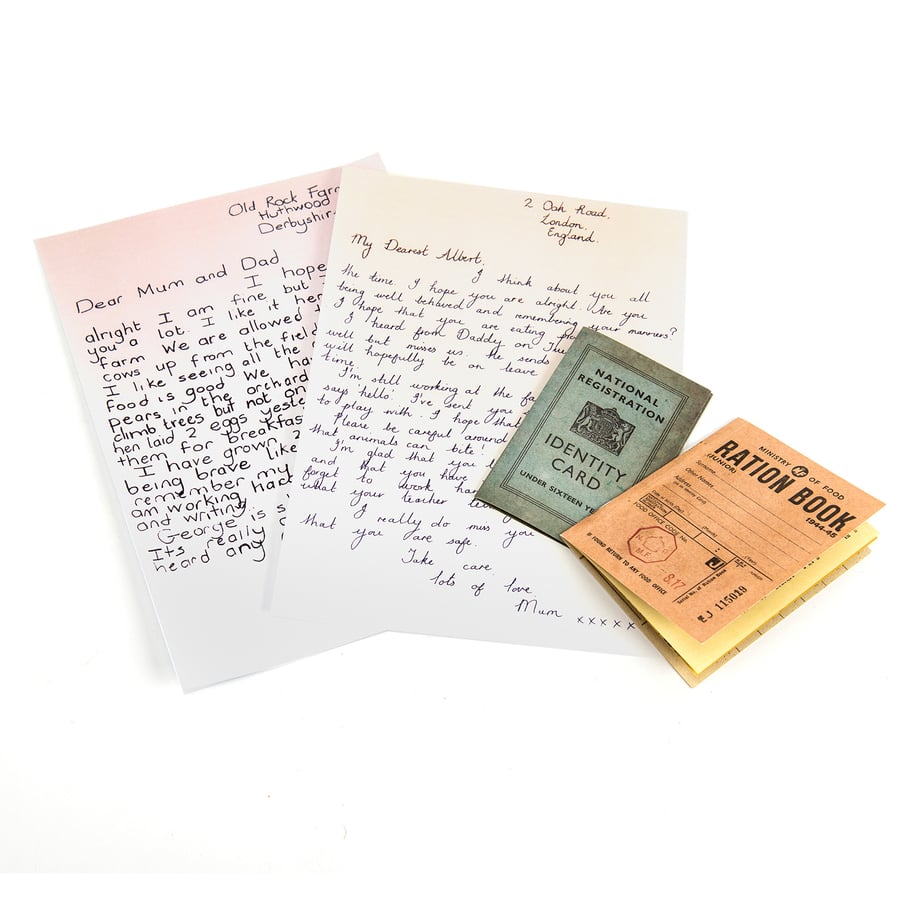 Old Rock Farm
Huthwood
Derbyshir
Dear Mum and Dad
I hope
alright I am fine but
you a lot. I like it her
farm We are allowed t
cows up from the field
I like seeing all the
Food is good We hav
pears in the orchard
climb trees but not on
hen laid 2 eggs yeste
them for breakfas
I have grown 2
being brave like
remember my
am working hard
and writing.
George is s
Its really
heard any
2 Oak Road,
London.
England.
My Dearest Albert.
I think about you all
the time. I hope you are alright. Are you
being well behaved and remembering your manners?
I hope that you are eating pro
I heard from Daddy on Tu
well but misses us. He sends
will hopefully be on leave
time
I'm still working at the fa
says 'hello'. I've sent you
to play with. I hope tha
Please be careful around
that animals can bite!
I'm glad that you l
and that you have
forget to work har
what your teacher tel
I really do miss you
that you are safe.
Take care
lots of love
Mum
x x x x x
NATIONAL
REGISTRATION
IDENTITY
CARD
UNDER SIXTEEN YE
MINISTRY OF FOOD
RATION BOOK
(JUNIOR)
1944-45
Surname
Other Names
Address
FOOD OFFICE CODE No.
IF FOUND RETURN TO ANY FOOD OFFICE
M.F.
8.17
J
Serial No. of Ration Book
J 115029